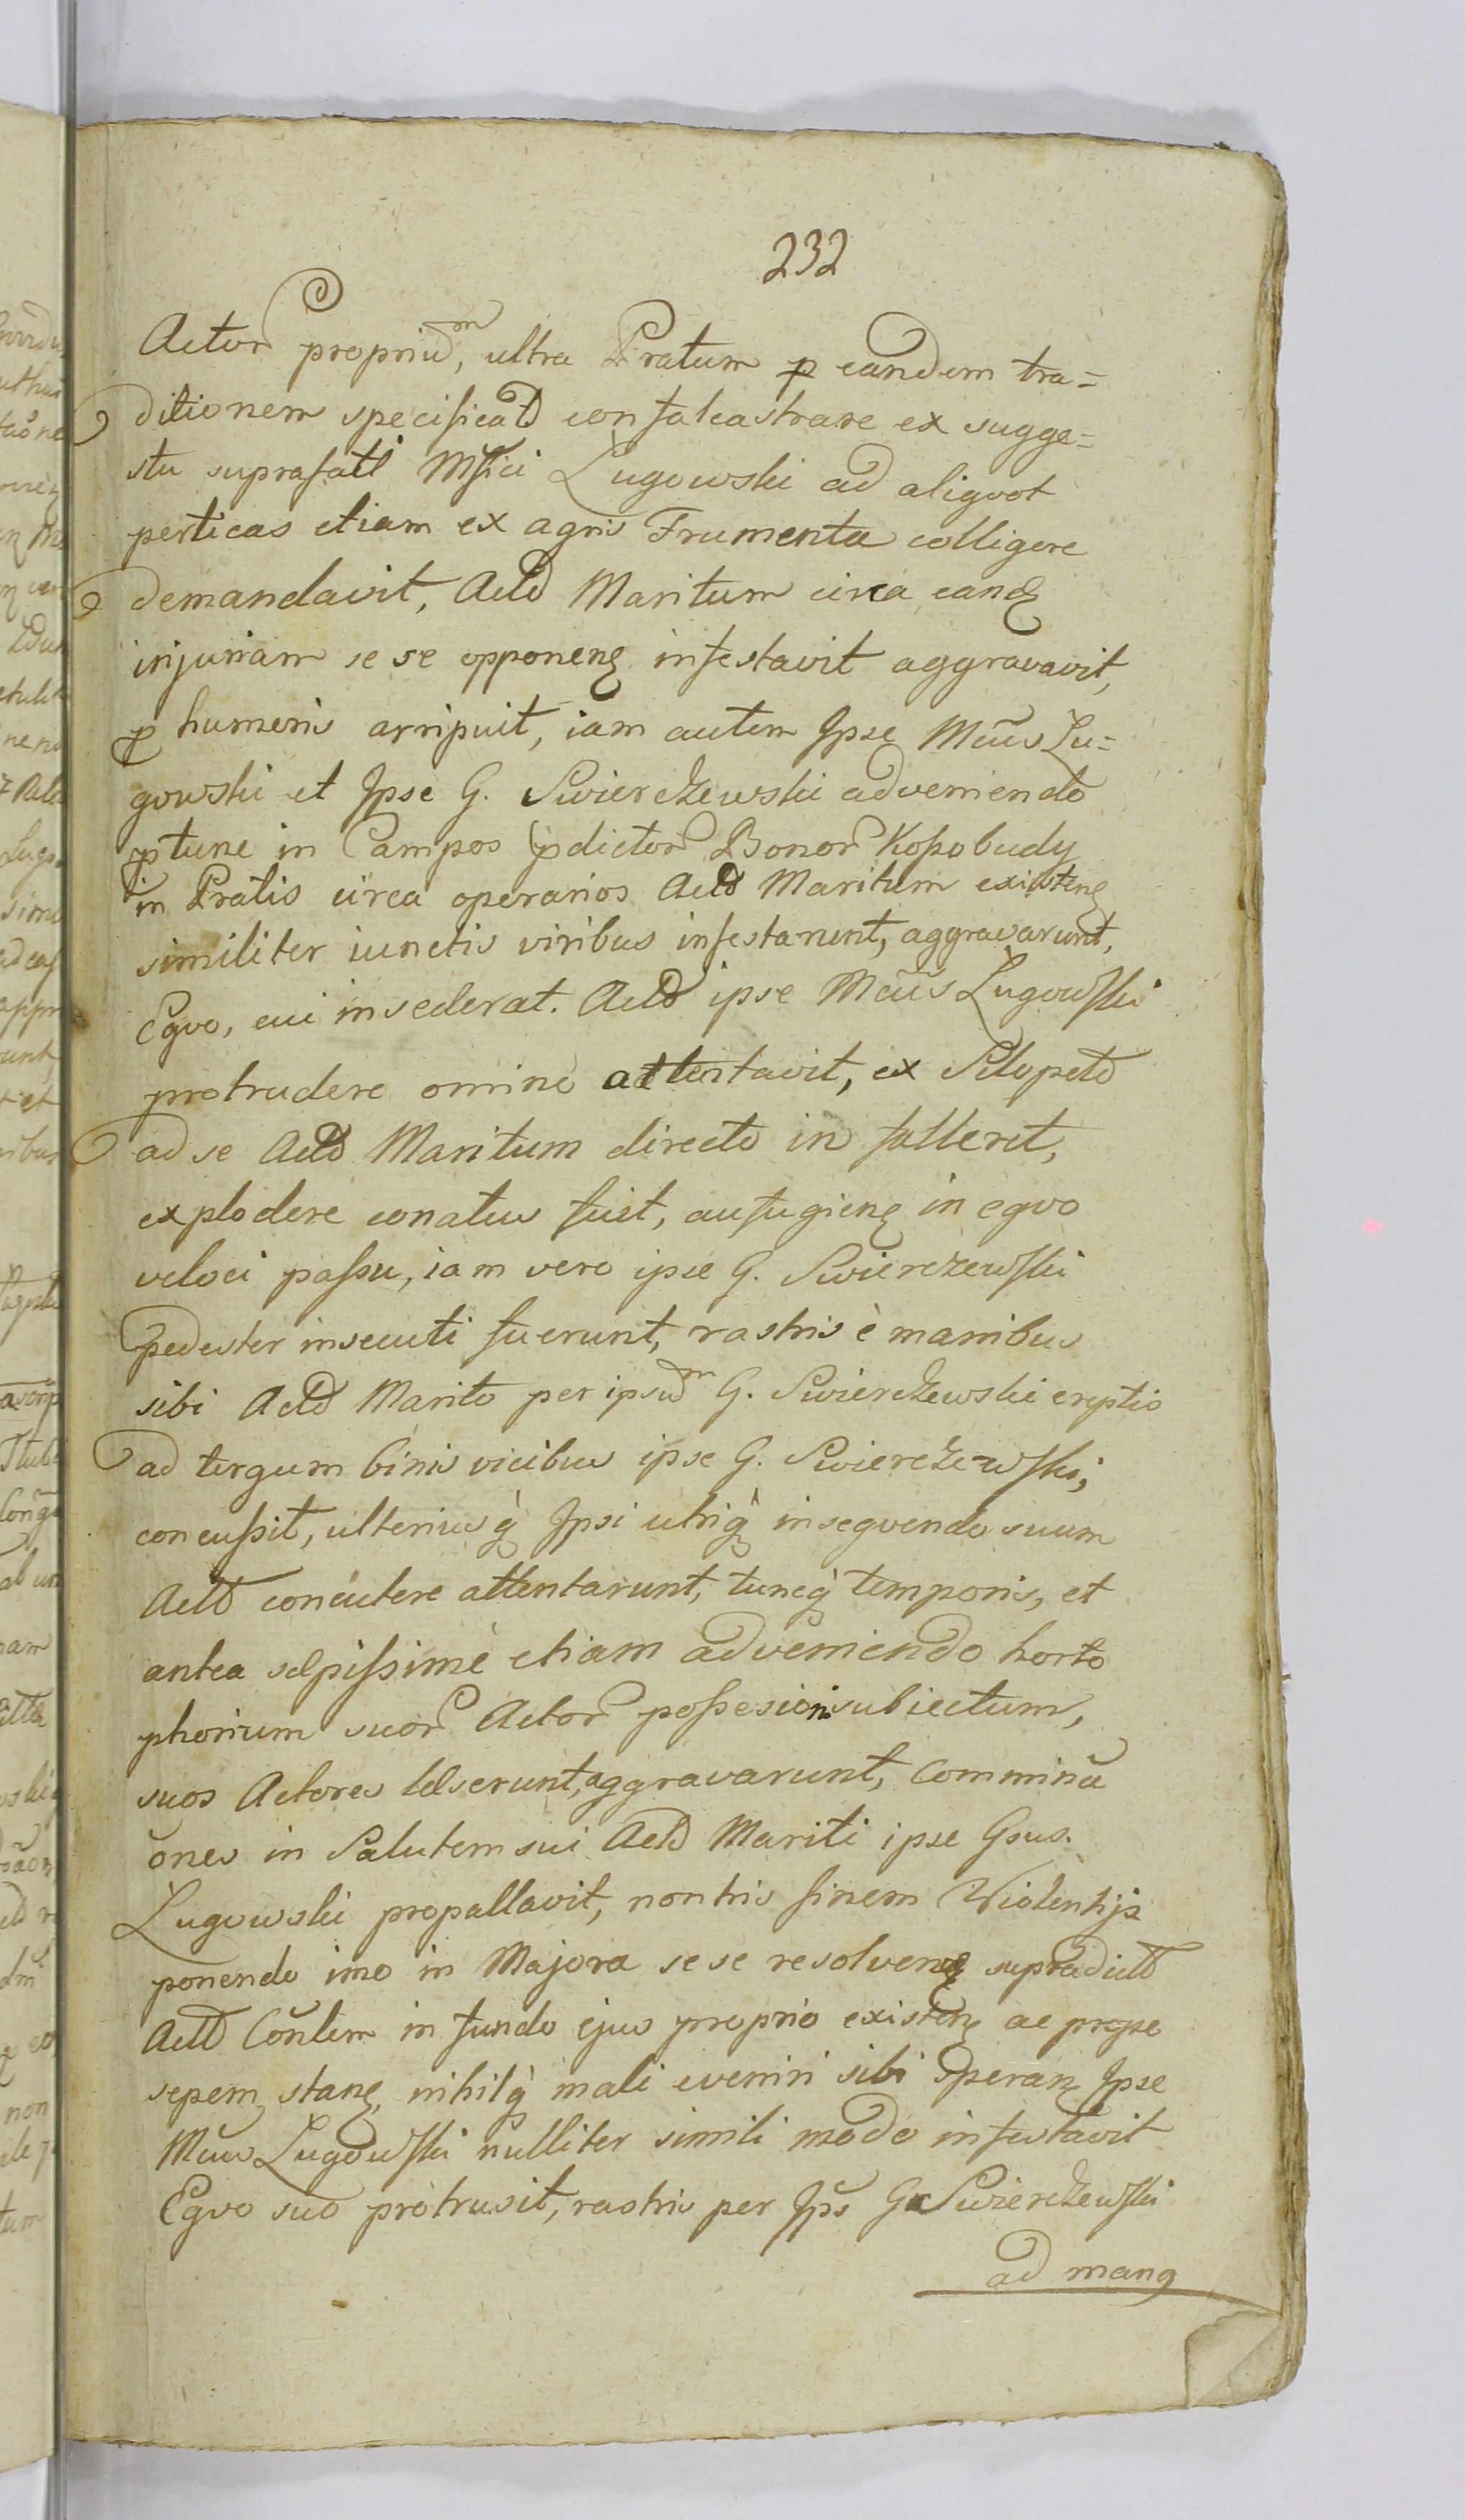 232
Actor propriũm, ultra Pratum p eandem tra=
ditionem specificat confalcastrare ex sugge=
stu suprafati Mfici Ługowski ad aliqvot
perticas etiam ex agris Frumenta colligere
demandavit, Acto Maritum circa eand
injuriam se se opponen infestavit aggravavit,
p humeris arripuit, iam autem Ipse Mcus Łu=
gowski et Ipse G. Swiereżewski adveniendo
p tunc in Campos pdictor Bonor Kosobudy
in Pratis circa operarios Acto Maritum existen
similiter iunctis viribus infestarunt, aggravarunt,
Eqvo, cui insederat. Acto ipse Mcus Ługowski
protrudere omine attentavit, ex Sclopeto
ad se Acto Maritum directo in fallerit,
explodere conatus fuit, aufugien in eqvo
veloci passu, iam vero ipse G. Swierezewski
pedester insecuti fuerunt, rastris è manibus
sibi Acto Marito per ipsum G. Swiereżewski ereptio
ad tergum binis vicibus ipse G. Swiereżewski,
concussit, ulterius q̀ Ipsi utriq̀ inseqvendo suum
Acto concutere attentarunt, tuncq̀ temporis, et
antea sæpissimè etiam adveniendo horto
phorium suor Actor possesioni subiectum,
suos Actores læserunt, aggravarunt, Comminã
ões in Salutem sui Acto Mariti ipse Gsus.
Ługowski propallavit, non his finem Violentijs
ponendo imo in Majora se se resolven supradict
Acto Cõnlem in fundo ejus proprio existen ac prope
sepem stan, nihilq̀ mali eveniri sibi speran Ipse
Mcus Ługowski nulliter simili modo infestavit
Eqvo suo protrusit, rastris per Ips G Swiereżewski
ad man9